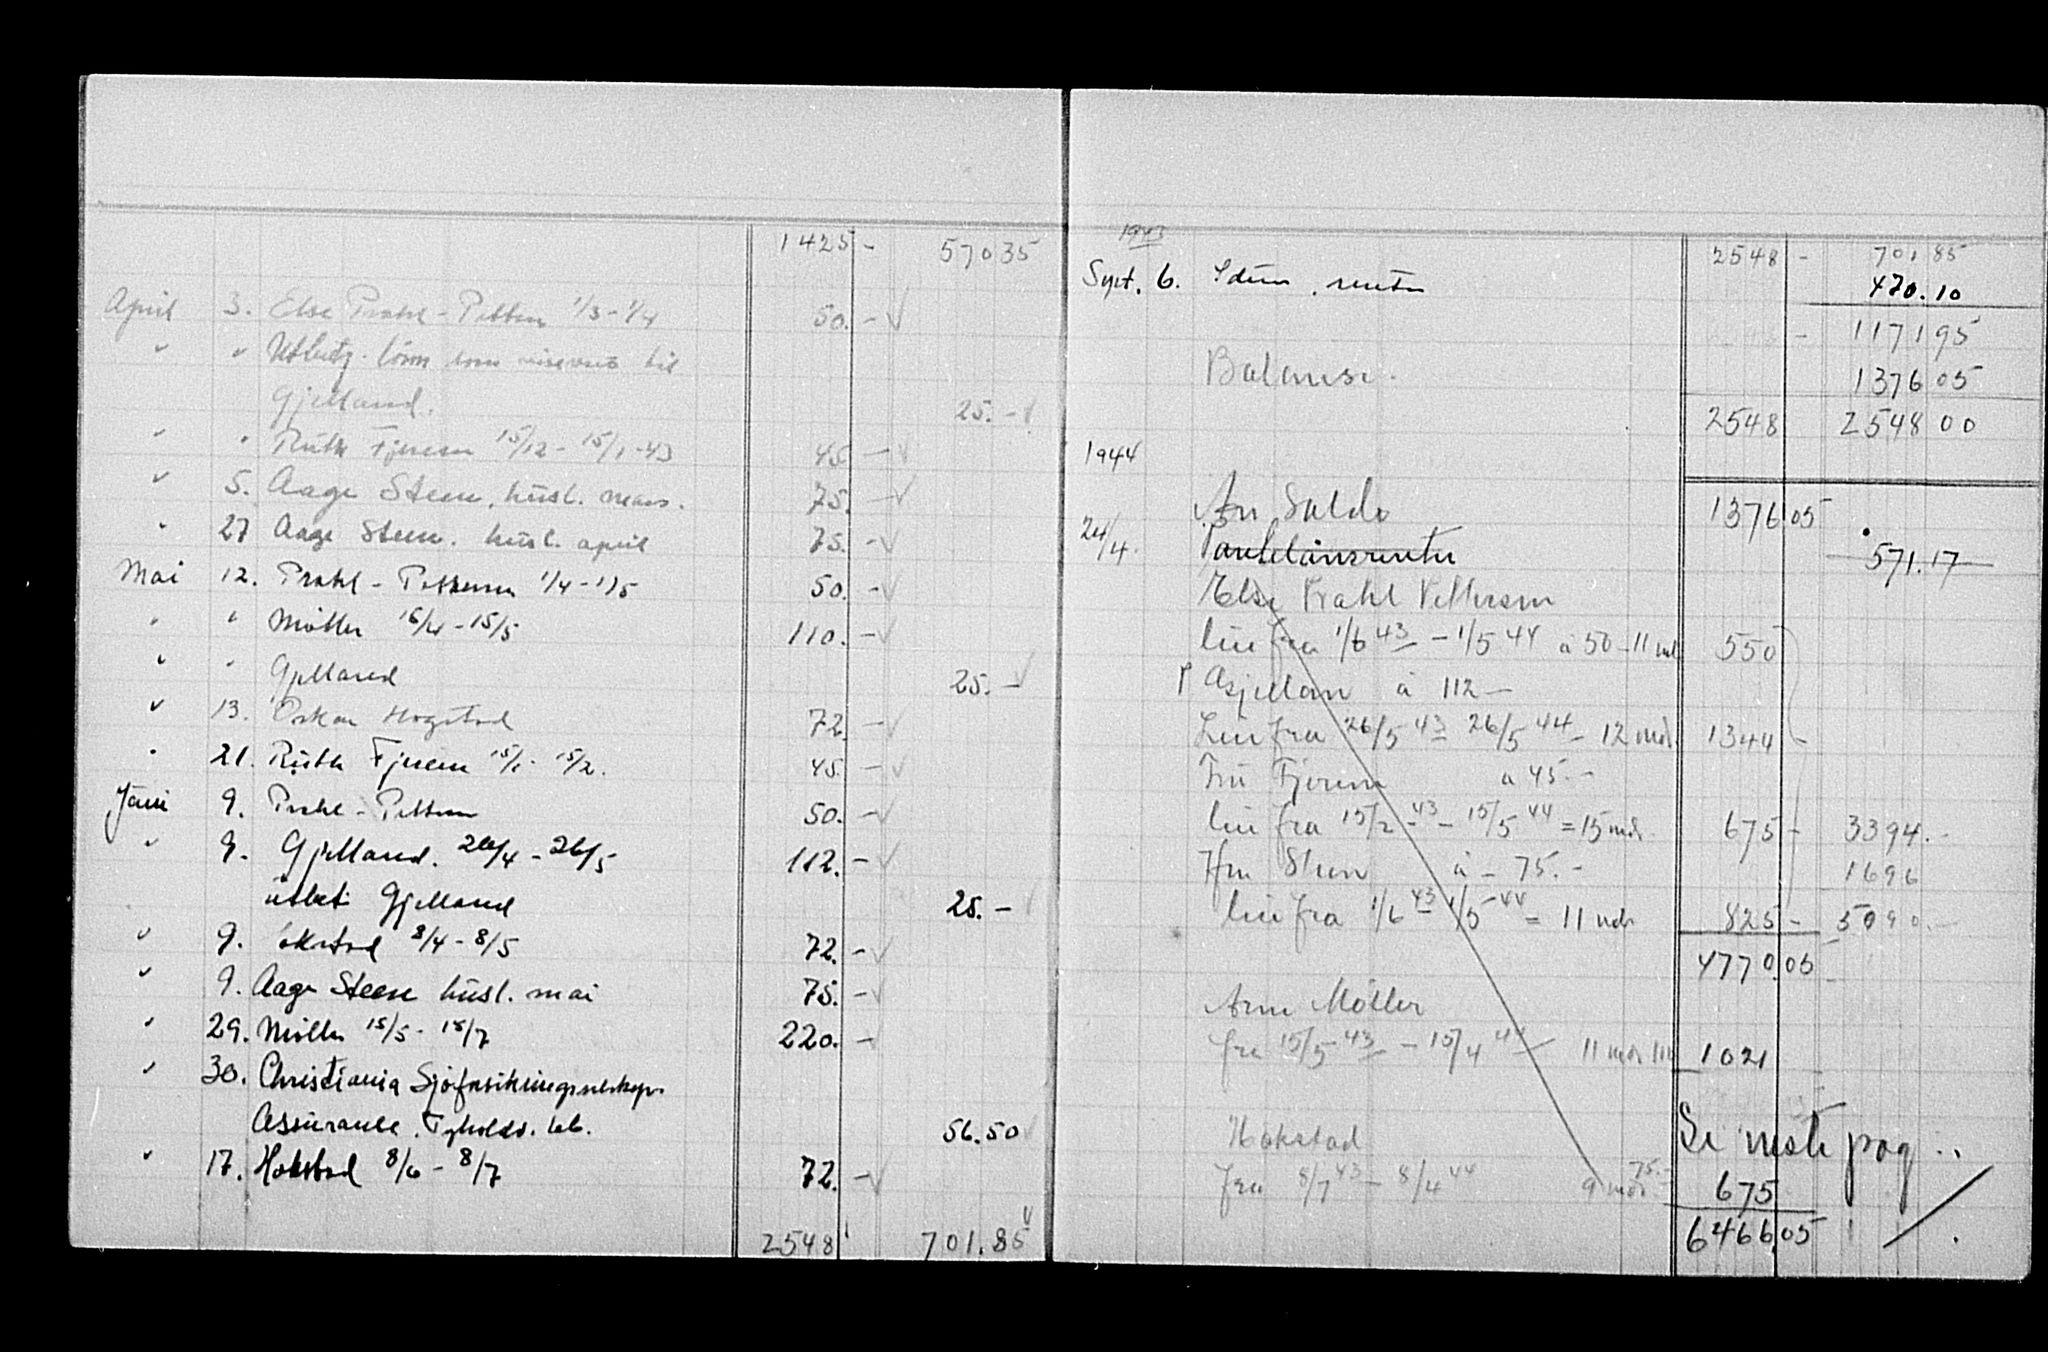 1425 - 570 35
April 3. Else Prahl - Petters 1/3 - 1/4 50. -
" " Utbetg. som til
Gjelland. 25. -
" " Ruth Fjerem 15/12 - 15/1 - 43 45 -
" 5. Aage Steen, husl. mars. 75. -
" 27 Aage Steen. husl. april 75. -
Mai 12. Prahl - Pettersen 1/4 - 1/5 50. -
" " Møller 15/4 - 15/5 110. -
" " Gjelland 25. -
" 13. Oskar Hogstad 72. -
" 21. Ruth Fjerem 15/1 - 15/2. 45. -
Juni 9. Prahl - Pettersen 50. -
" 9. Gjelland. 26/4 - 26/5 112. -
utbet Gjelland 25. -
" 9. Hokstad 8/4 - 8/5 72. -
" 9. Aage Steen husl. mai 75. -
" 29. Møller 15/5 - 15/7 220. -
" 30. Christiania Sjøforsikringsselskap
Assurance. 56.50
" 17. Hokstad 8/6 - 8/7 72. -
2548 701.85
1943 2548 - 701.85
Sept. 6. Idem, renter 470.10
- 1171 95
Balanse. 1376 05
2548 2548 00
1944
An Saldo 1376.05
24/4. Panthlånsrenter 571.17
Else Prahl Pettersen
leie fra 1/6 43 - 1/5 44 à 50 - 11 md 550
à 112 -
Leie fra 26/5 43 26/5 44 - 12 mdr. 1344 -
Fru Fjerem à 45. -
leie fra 15/2 - 43 - 15/5 44 = 15 mdr. 675 - 3394. -
Hr Steen à - 75. - 1696
leie fra 1/6 43 1/5 - 44 = 11 mdr 825 - 5090. -
4770.05
Arne Møller
fra 15/5 43 - 15/4 44 11 mdr 1021
Se neste pag..
Hokstad
fra 8/7 43 - 8/4 44 9 mdr. 75. - 675
6466.05